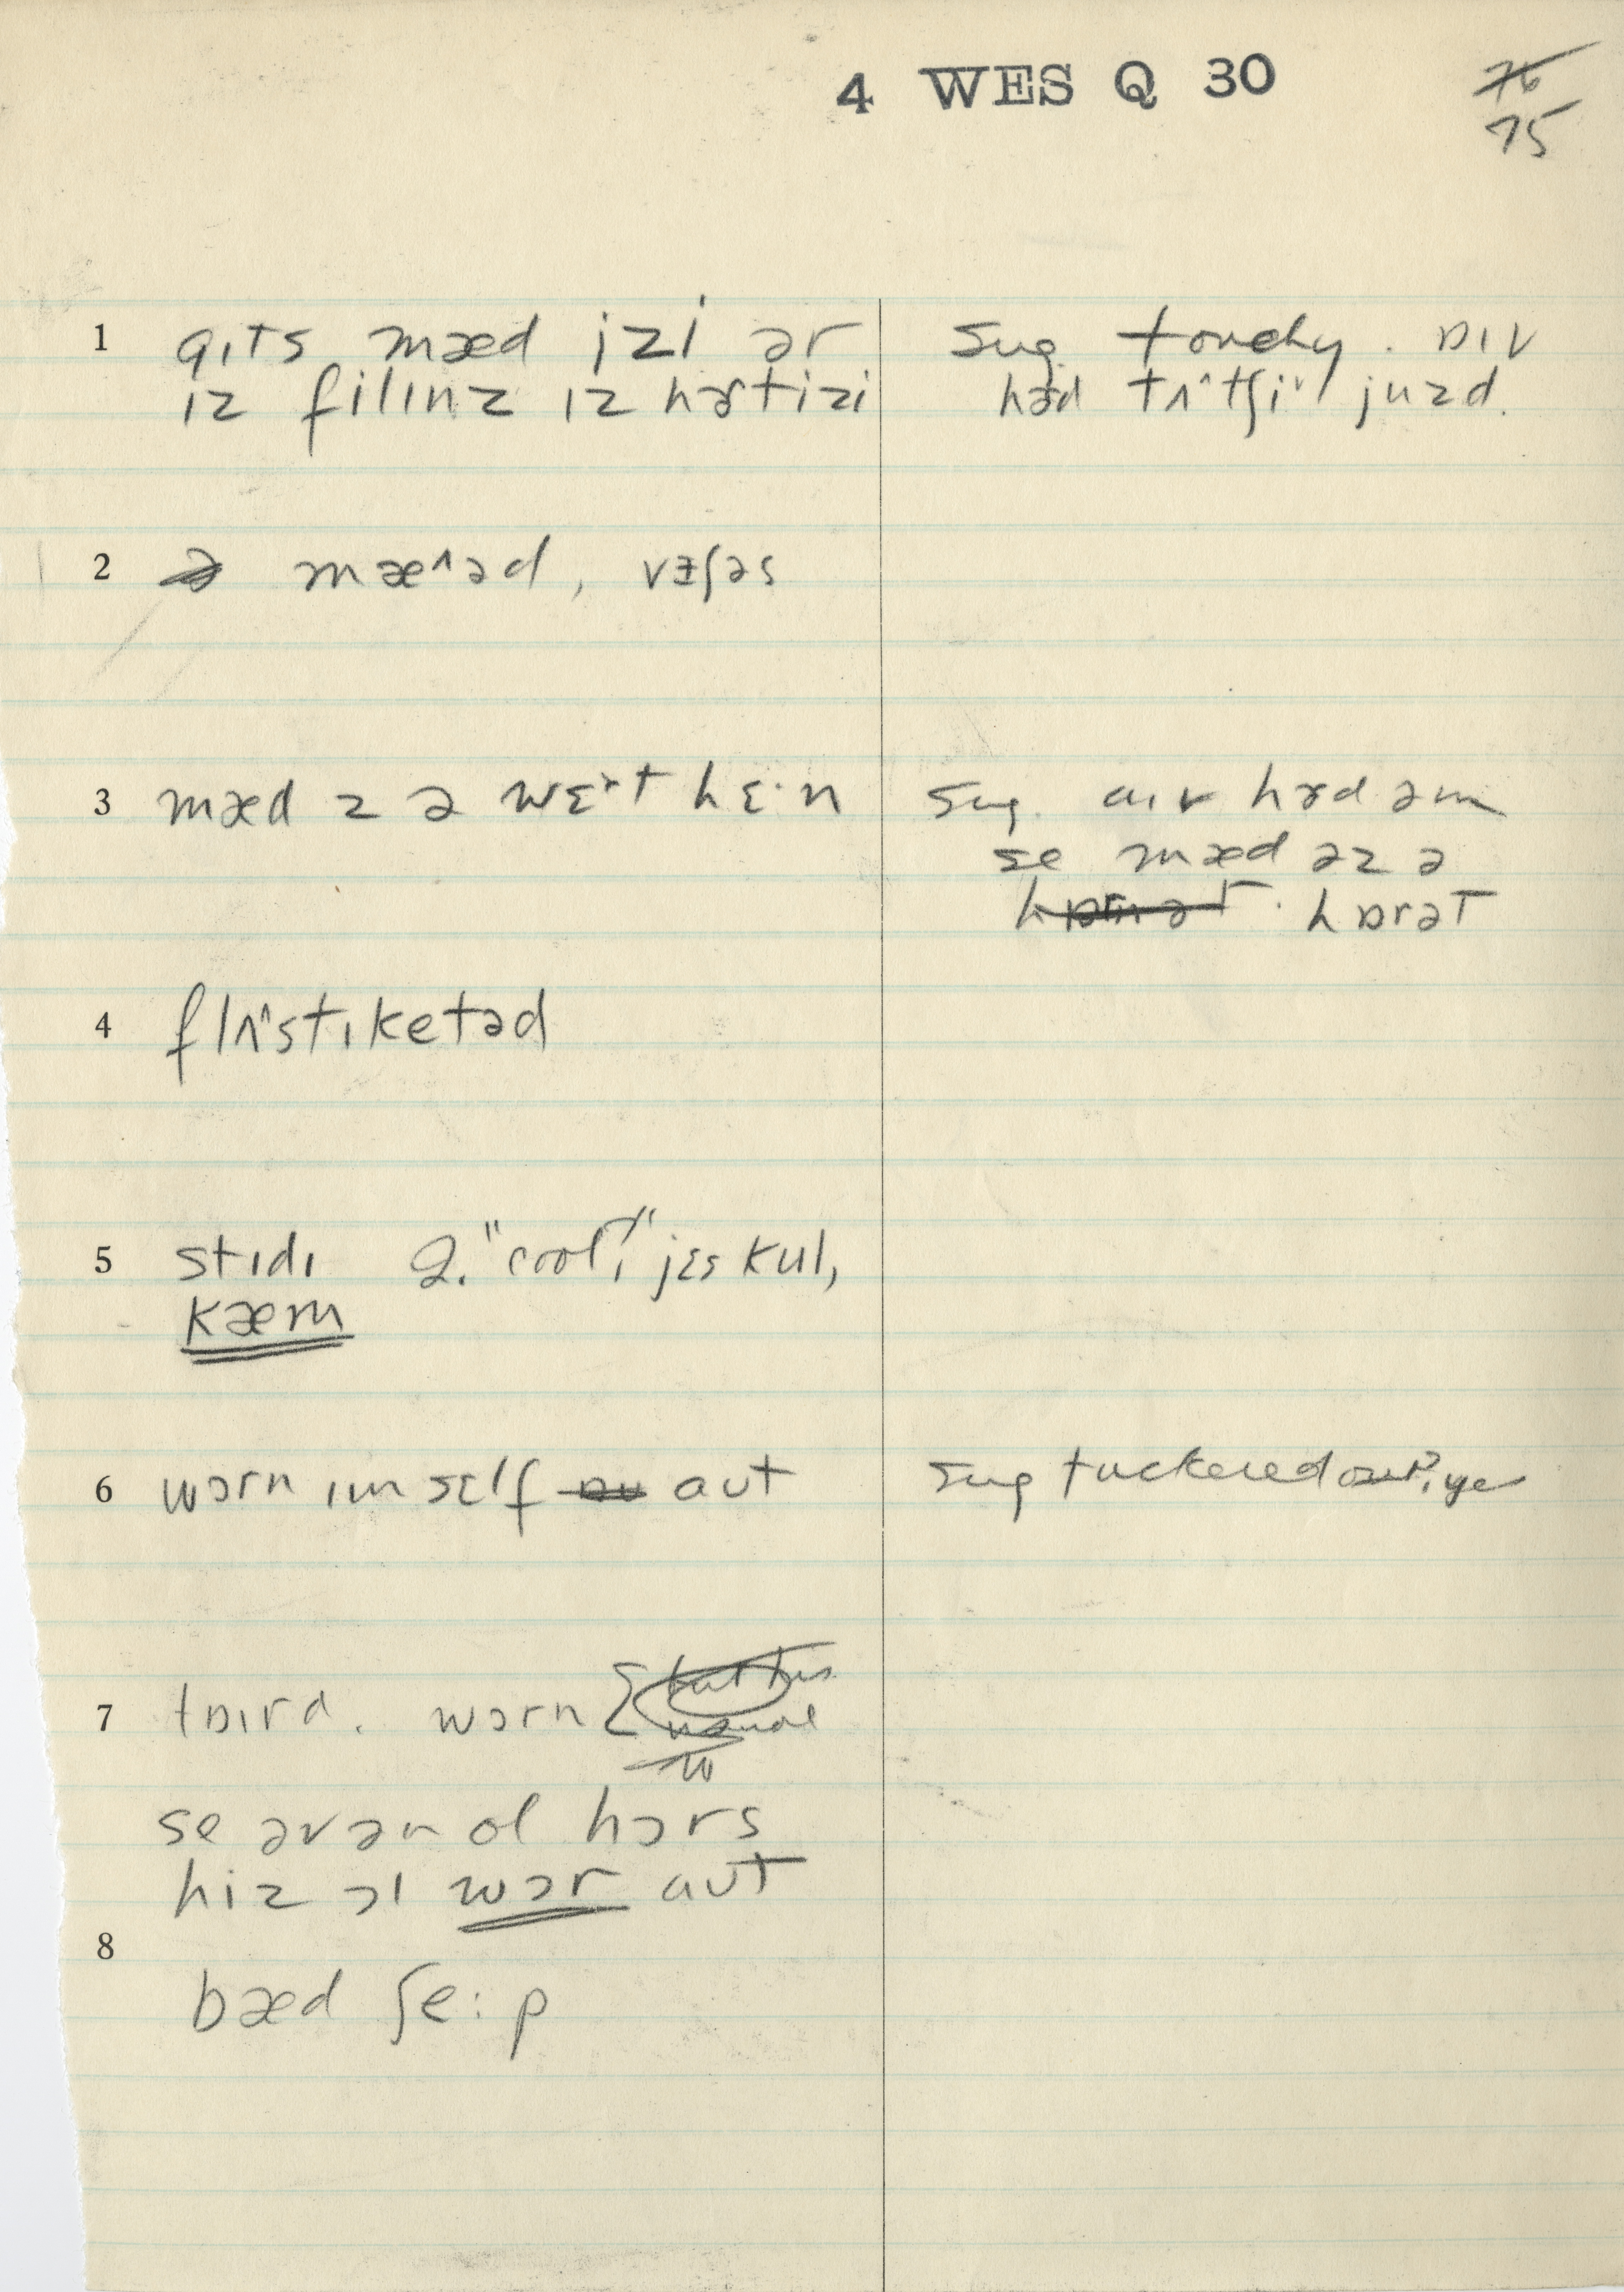 4 WES Q 30
~~76~~
75
1 gɪts mæd izi ər
ɪz filɪnz ɪz hɚtizi
sug. touchy. ɒɪv
hɚd tʌ^tʃi^ juzd.
2 ~~ə~~ mæ^əd, vɪʃəs
3 mæd z ə wɛ˞t hɛ·n
sug. aɪv hɚd əm
se mæd əz ə
~~hɒrnət~~. hɒrət
4 flʌ^stɪketəd
5 stɪdɪ 2. "cool," jɛs kul,
kæm
6 wɔrn ɪm sɛlf ~~aʊ~~ aʊt
sug tuckered out?, ye
7 tɒɪrd. wɔrn { ~~but this~~
~~usual~~
~~w~~
se əvən ol hɔrs
hiz ɔl wɔr aʊt
8
bæd ʃe:p